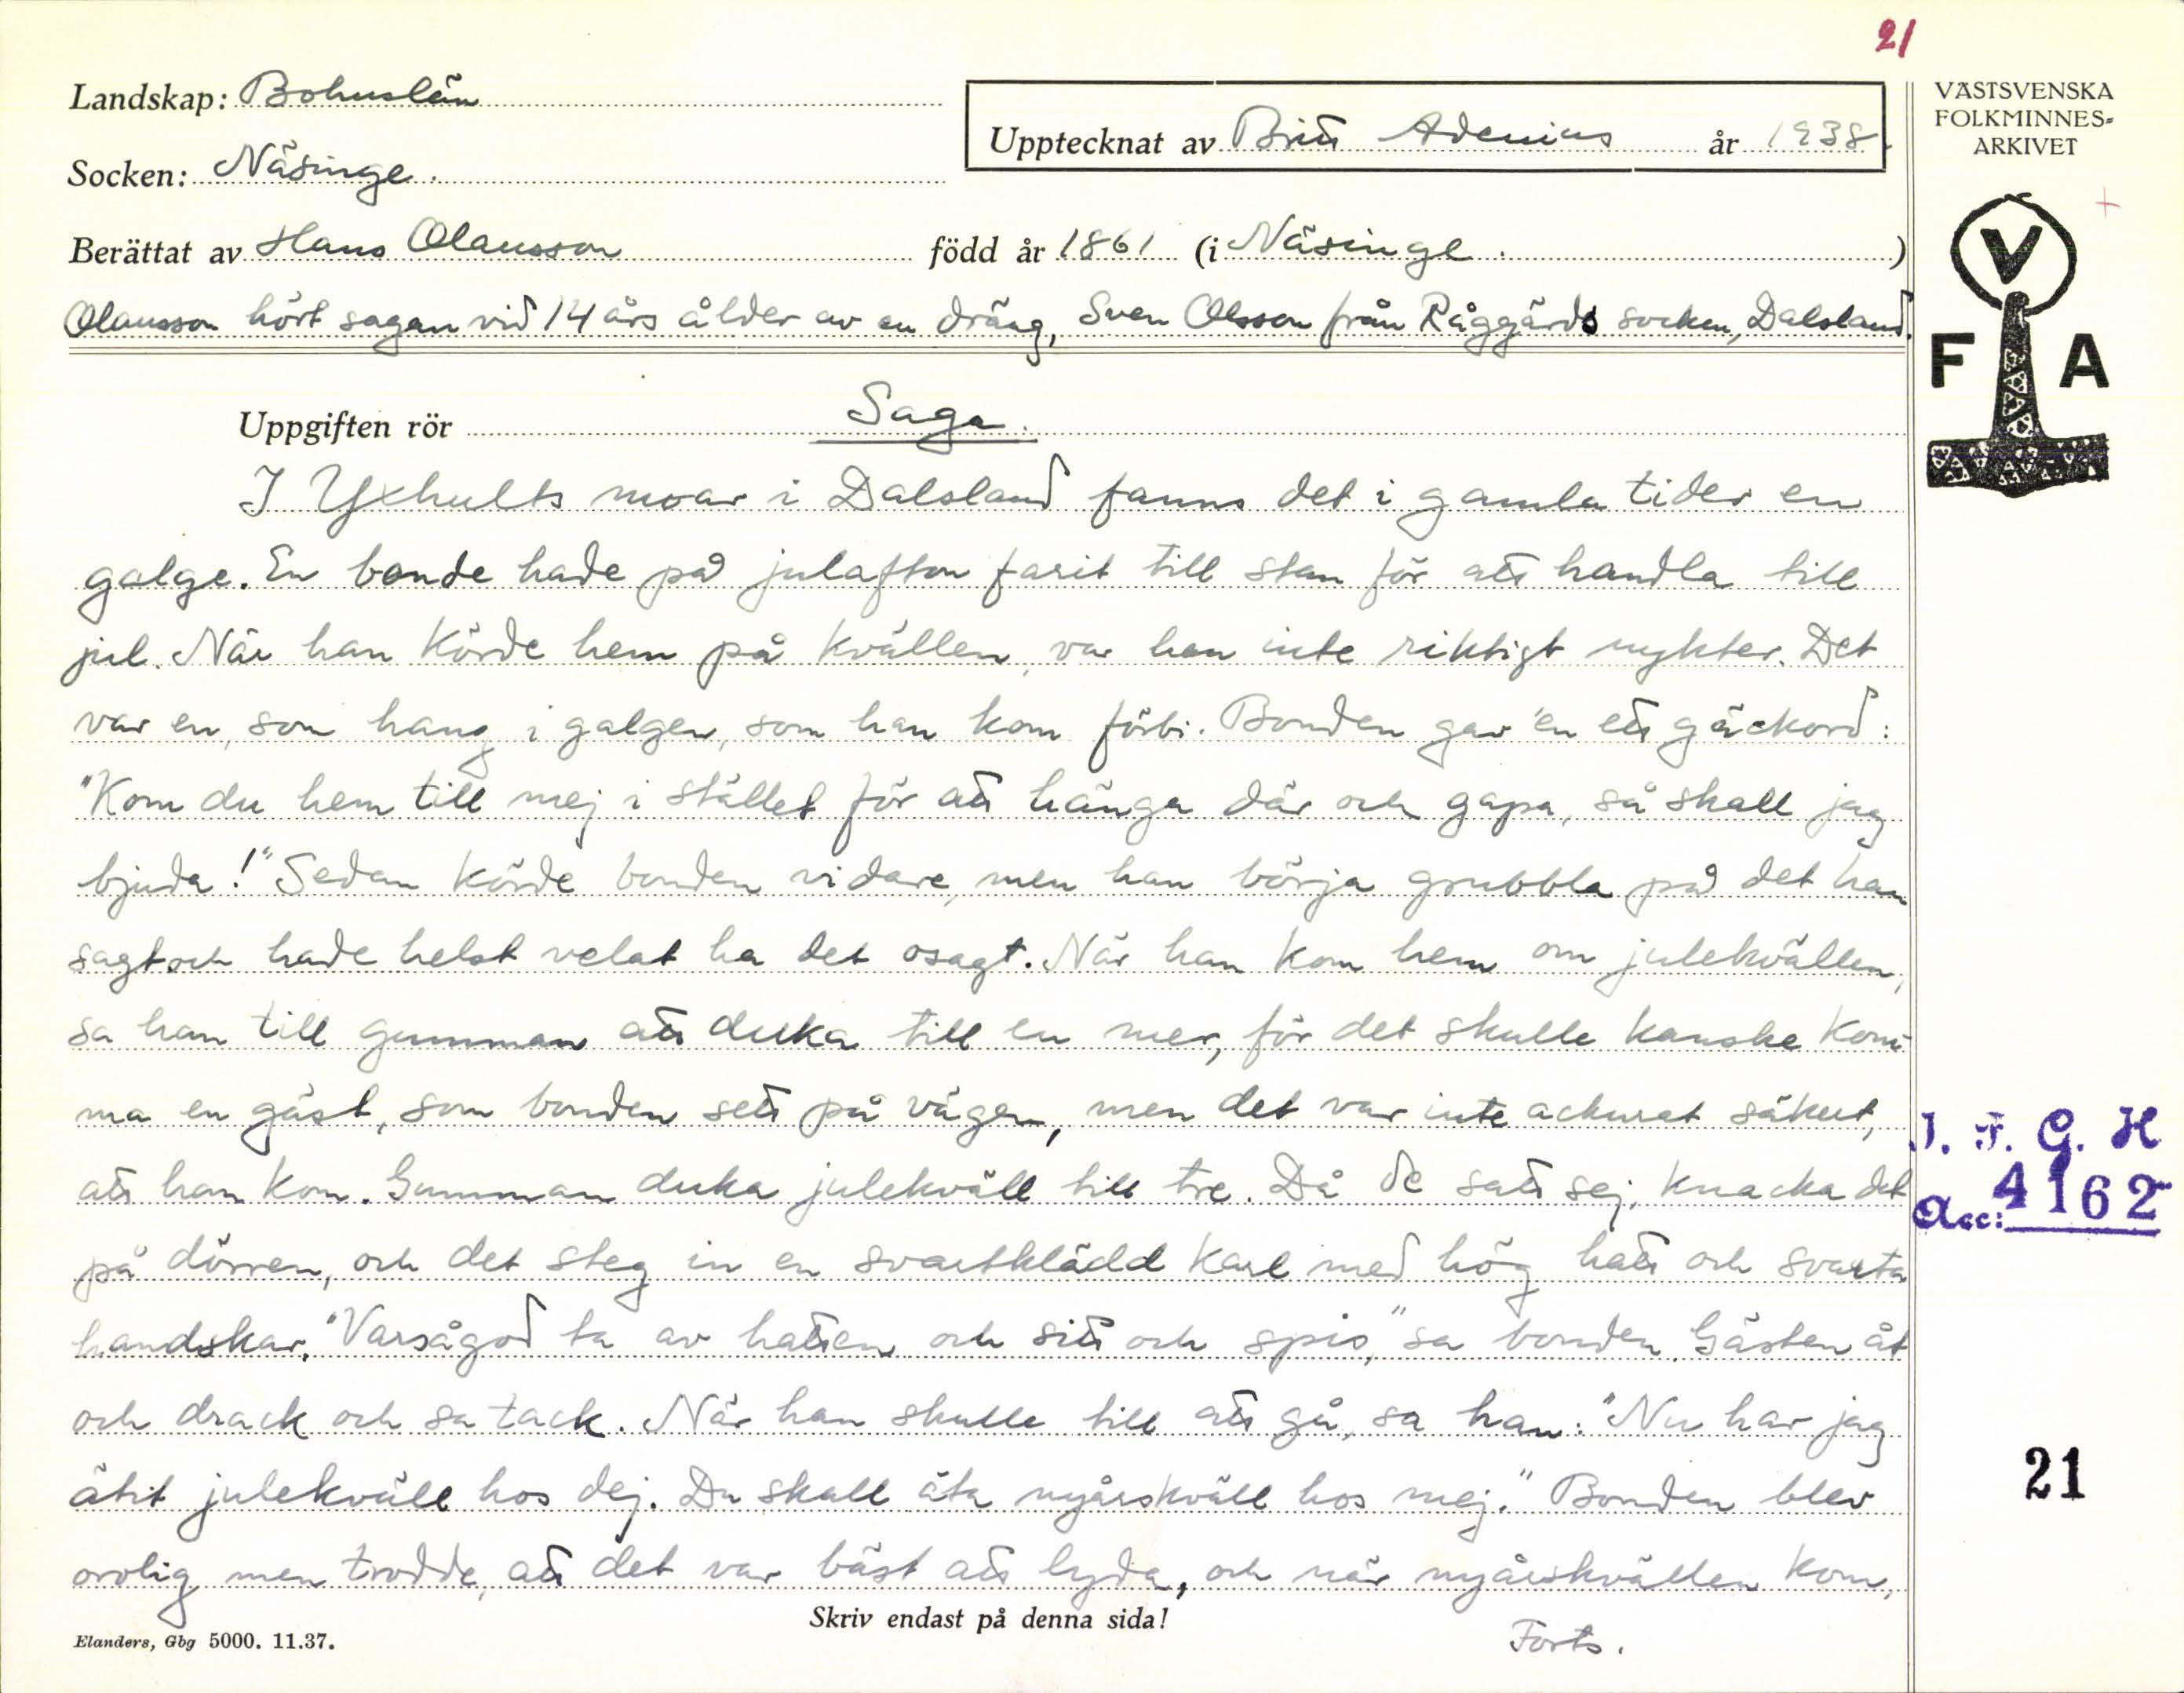 21
Landskap: Bohuslän
Upptecknat av Britt Adenius år 1938.
VÄSTSVENSKA
FOLKMINNES-
ARKIVET
Socken: Näsinge.
Berättat av Hans Olausson född år 1861 (i Näsinge.)
Olausson hört sagan vid 14 års ålder av en dräng, Sven Olsson från Råggärds socken, Dalsland.
V
F A
Uppgiften rör Saga.
I Yxhults moar i Dalsland fanns det i gamla tider en
galge. En bonde hade på julafton farit till stan för att handla till
jul. När han körde hem på kvällen, var han inte riktigt nykter. Det
var en, som hang i galgen, som han kom förbi. Bonden gav 'en ett gäckord:
"Kom du hem till mej i stället för att hänga där och gapa, så skall jag
bjuda!" Sedan körde bonden vidare, men han börja grubbla på det han
sagt och hade helst velat ha det osagt. När han kom hem om julekvällen,
sa han till gumman att duka till en mer, för det skulle kanske kom-
ma en gäst, som bonden sett på vägen, men det var inte ackurat säkert,
att han kom. Gumman duka julekväll till tre. Då de satt sej, knacka det
på dörren, och det steg in en svartklädd karl med hög hatt och svarta
handskar. "Varsågod ta av hatten och sitt och spis," sa bonden. Gästen åt
och drack och sa tack. När han skulle till att gå, sa han: "Nu har jag
ätit julekväll hos dej. Du skall äta nyårskväll hos mej." Bonden blev
orolig men trodde, att det var bäst att lyda, och när nyårskvällen kom,
J. F. G. H
Acc: 4162
21
Skriv endast på denna sida!
Elanders, Gbg 5000. 11.37.
Forts.